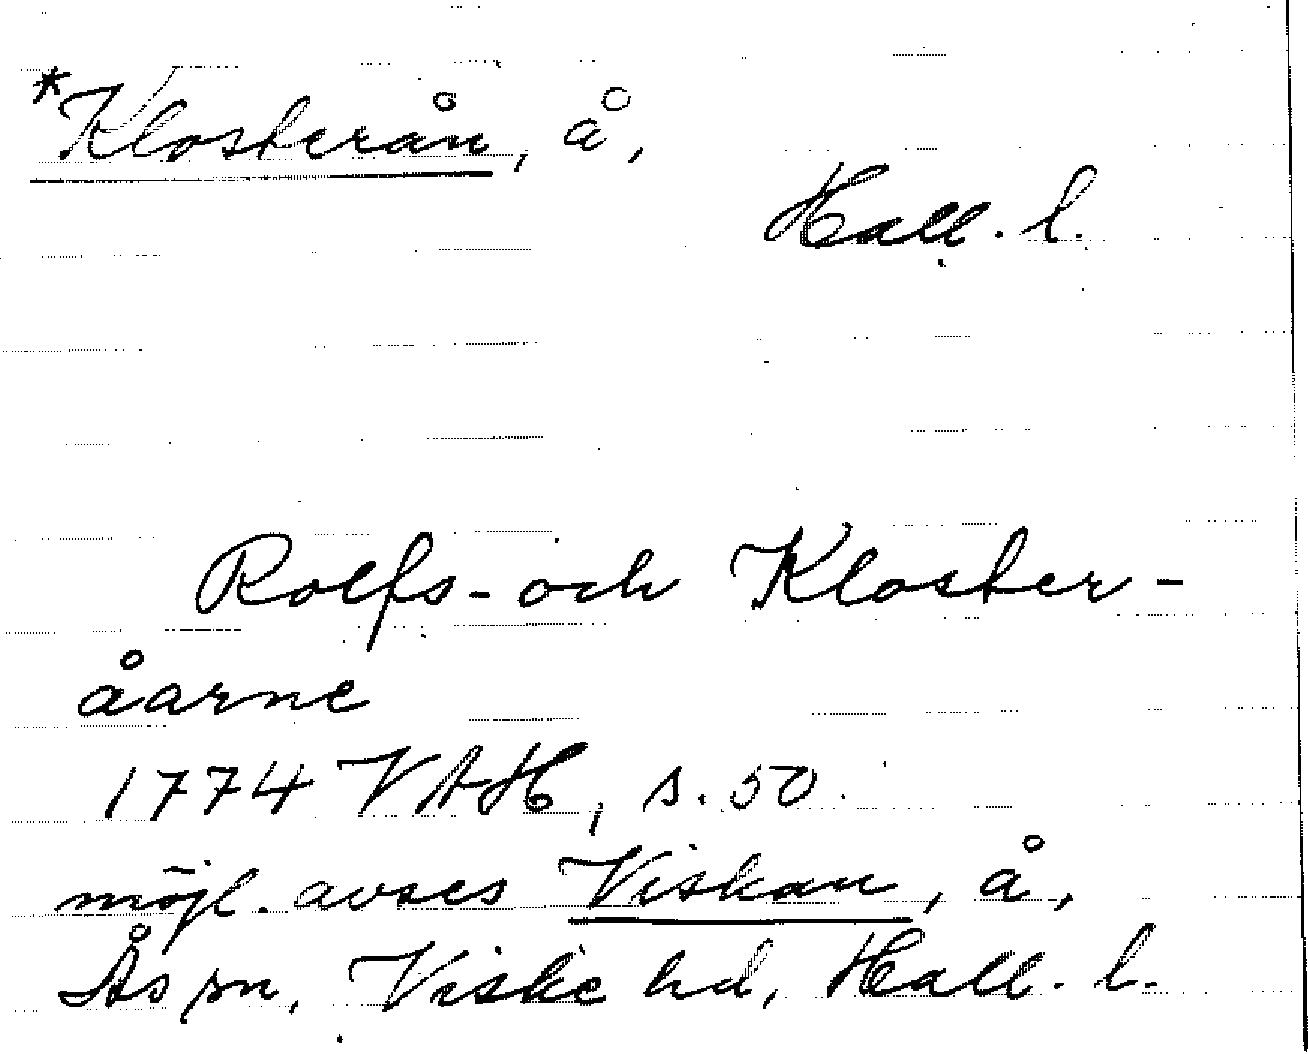 *Klosterån, å,
Hall. l.
Rolfs- och Kloster-
åarne
1774 VAH, s. 50.
möjl. avses Viskan, å,
Ås sn, Viske hd, Hall. l.